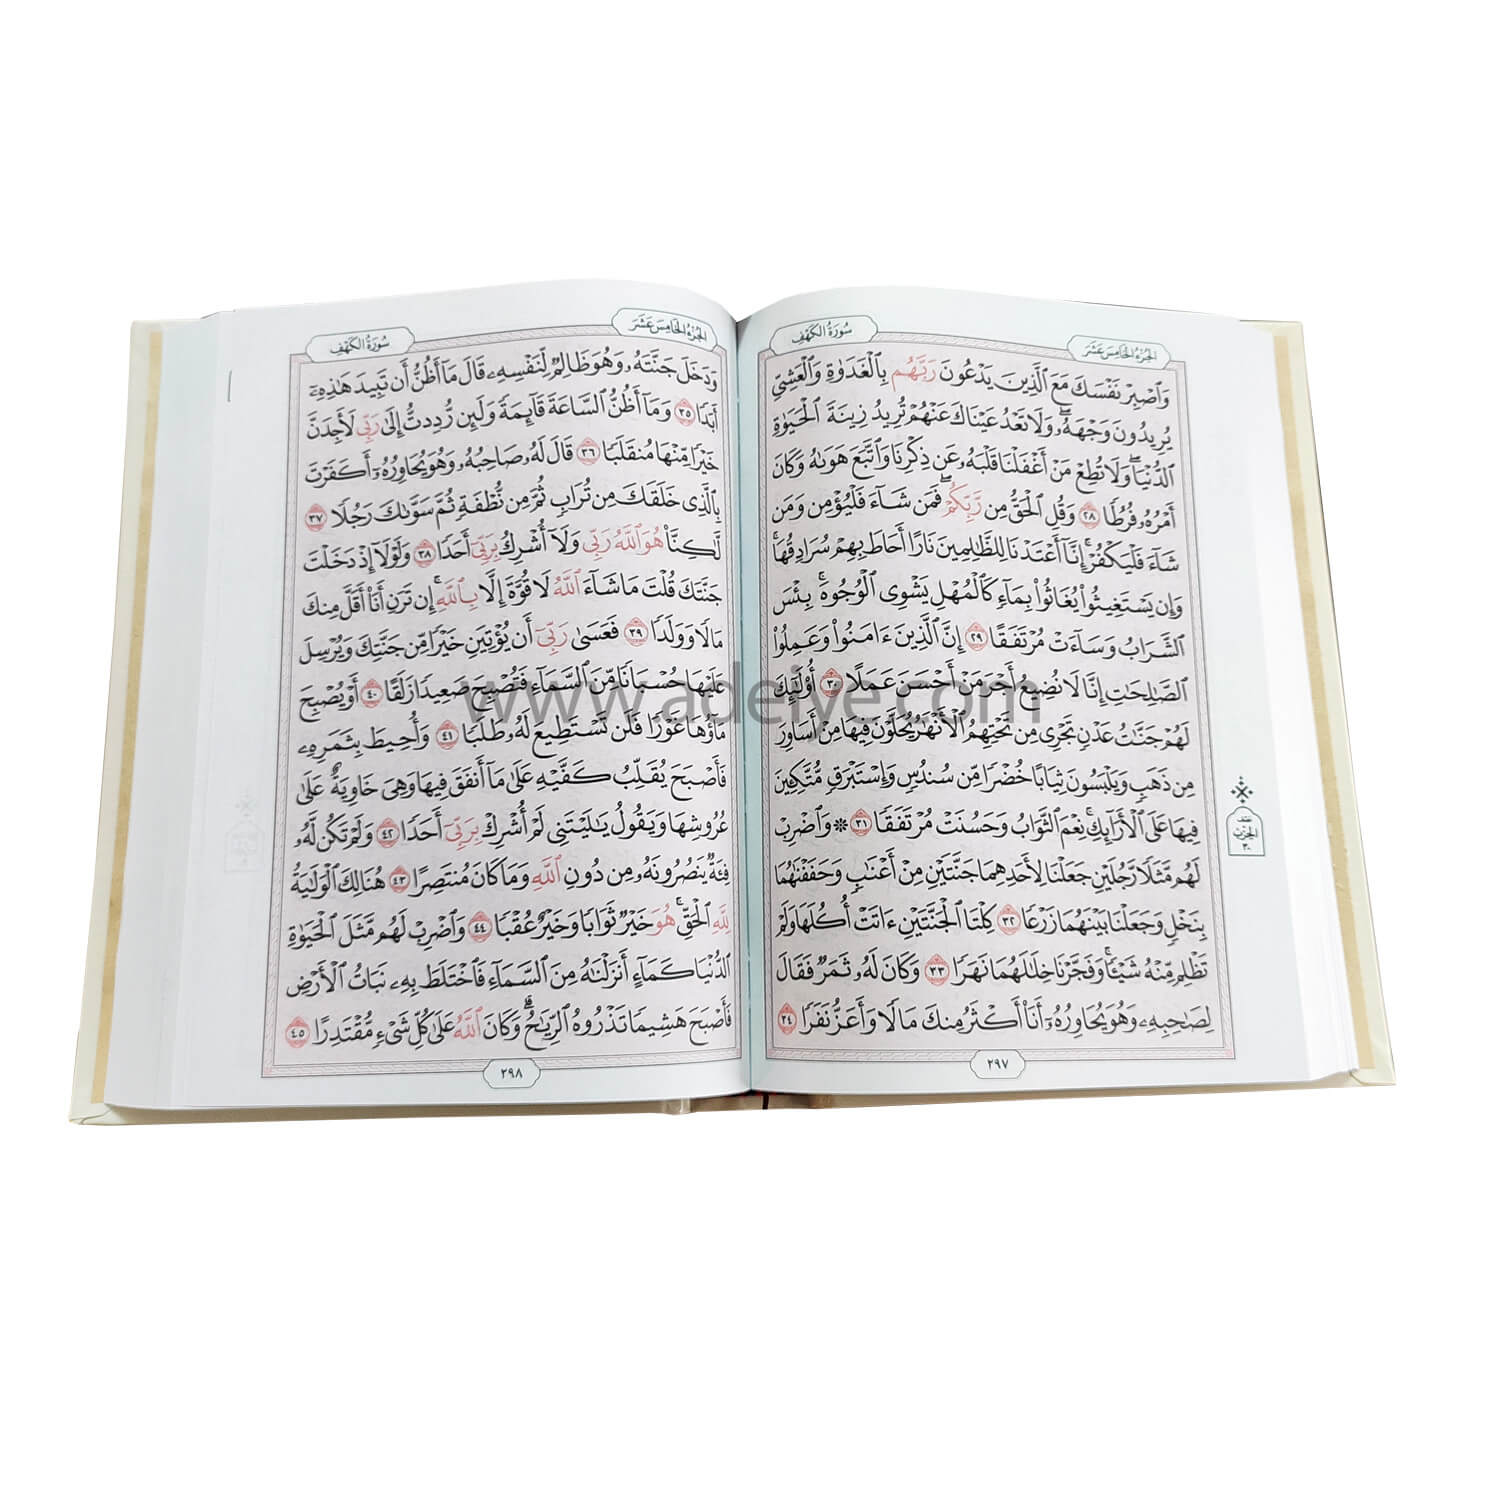 سُورَةُ الكَهْفِ
الجُزءُ الخَامِسَ عَشَرَ
وَٱصْبِرْ نَفْسَكَ مَعَ ٱلَّذِينَ يَدْعُونَ رَبَّهُم بِٱلْغَدَوٰةِ وَٱلْعَشِىِّ
يُرِيدُونَ وَجْهَهُۥۖ وَلَا تَعْدُ عَيْنَاكَ عَنْهُمْ تُرِيدُ زِينَةَ ٱلْحَيَوٰةِ
ٱلدُّنْيَاۖ وَلَا تُطِعْ مَنْ أَغْفَلْنَا قَلْبَهُۥ عَن ذِكْرِنَا وَٱتَّبَعَ هَوَىٰهُ وَكَانَ
أَمْرُهُۥ فُرُطًا ٢٨ وَقُلِ ٱلْحَقُّ مِن رَّبِّكُمْۖ فَمَن شَآءَ فَلْيُؤْمِن وَمَن
شَآءَ فَلْيَكْفُرْۚ إِنَّآ أَعْتَدْنَا لِلظَّٰلِمِينَ نَارًا أَحَاطَ بِهِمْ سُرَادِقُهَاۚ
وَإِن يَسْتَغِيثُوا۟ يُغَاثُوا۟ بِمَآءٍ كَٱلْمُهْلِ يَشْوِى ٱلْوُجُوهَۚ بِئْسَ
ٱلشَّرَابُ وَسَآءَتْ مُرْتَفَقًا ٢٩ إِنَّ ٱلَّذِينَ ءَامَنُوا۟ وَعَمِلُوا۟
ٱلصَّٰلِحَٰتِ إِنَّا لَا نُضِيعُ أَجْرَ مَنْ أَحْسَنَ عَمَلًا ٣٠ أُو۟لَٰٓئِكَ
لَهُمْ جَنَّٰتُ عَدْنٍ تَجْرِى مِن تَحْتِهِمُ ٱلْأَنْهَٰرُ يُحَلَّوْنَ فِيهَا مِنْ أَسَاوِرَ
مِن ذَهَبٍ وَيَلْبَسُونَ ثِيَابًا خُضْرًا مِّن سُندُسٍ وَإِسْتَبْرَقٍ مُّتَّكِـِٔينَ
فِيهَا عَلَى ٱلْأَرَآئِكِۚ نِعْمَ ٱلثَّوَابُ وَحَسُنَتْ مُرْتَفَقًا ٣١ ۞ وَٱضْرِبْ
لَهُم مَّثَلًا رَّجُلَيْنِ جَعَلْنَا لِأَحَدِهِمَا جَنَّتَيْنِ مِنْ أَعْنَٰبٍ وَحَفَفْنَٰهُمَا
بِنَخْلٍ وَجَعَلْنَا بَيْنَهُمَا زَرْعًا ٣٢ كِلْتَا ٱلْجَنَّتَيْنِ ءَاتَتْ أُكُلَهَا وَلَمْ
تَظْلِم مِّنْهُ شَيْـًٔاۚ وَفَجَّرْنَا خِلَٰلَهُمَا نَهَرًا ٣٣ وَكَانَ لَهُۥ ثَمَرٌ فَقَالَ
لِصَٰحِبِهِۦ وَهُوَ يُحَاوِرُهُۥٓ أَنَا۠ أَكْثَرُ مِنكَ مَالًا وَأَعَزُّ نَفَرًا ٣٤
نصف
الحزب
٣٠
٢٩٧
سُورَةُ الكَهْفِ
الجُزءُ الخَامِسَ عَشَرَ
وَدَخَلَ جَنَّتَهُۥ وَهُوَ ظَالِمٌ لِّنَفْسِهِۦ قَالَ مَآ أَظُنُّ أَن تَبِيدَ هَٰذِهِۦٓ
أَبَدًا ٣٥ وَمَآ أَظُنُّ ٱلسَّاعَةَ قَآئِمَةً وَلَئِن رُّدِدتُّ إِلَىٰ رَبِّى لَأَجِدَنَّ
خَيْرًا مِّنْهَا مُنقَلَبًا ٣٦ قَالَ لَهُۥ صَاحِبُهُۥ وَهُوَ يُحَاوِرُهُۥٓ أَكَفَرْتَ
بِٱلَّذِى خَلَقَكَ مِن تُرَابٍ ثُمَّ مِن نُّطْفَةٍ ثُمَّ سَوَّىٰكَ رَجُلًا ٣٧
لَّٰكِنَّا۠ هُوَ ٱللَّهُ رَبِّى وَلَآ أُشْرِكُ بِرَبِّىٓ أَحَدًا ٣٨ وَلَوْلَآ إِذْ دَخَلْتَ
جَنَّتَكَ قُلْتَ مَا شَآءَ ٱللَّهُ لَا قُوَّةَ إِلَّا بِٱللَّهِۚ إِن تَرَنِ أَنَا۠ أَقَلَّ مِنكَ
مَالًا وَوَلَدًا ٣٩ فَعَسَىٰ رَبِّىٓ أَن يُؤْتِيَنِ خَيْرًا مِّن جَنَّتِكَ وَيُرْسِلَ
عَلَيْهَا حُسْبَانًا مِّنَ ٱلسَّمَآءِ فَتُصْبِحَ صَعِيدًا زَلَقًا ٤٠ أَوْ يُصْبِحَ
مَآؤُهَا غَوْرًا فَلَن تَسْتَطِيعَ لَهُۥ طَلَبًا ٤١ وَأُحِيطَ بِثَمَرِهِۦ
فَأَصْبَحَ يُقَلِّبُ كَفَّيْهِ عَلَىٰ مَآ أَنفَقَ فِيهَا وَهِىَ خَاوِيَةٌ عَلَىٰ
عُرُوشِهَا وَيَقُولُ يَٰلَيْتَنِى لَمْ أُشْرِكْ بِرَبِّىٓ أَحَدًا ٤٢ وَلَمْ تَكُن لَّهُۥ
فِئَةٌ يَنصُرُونَهُۥ مِن دُونِ ٱللَّهِ وَمَا كَانَ مُنتَصِرًا ٤٣ هُنَالِكَ ٱلْوَلَٰيَةُ
لِلَّهِ ٱلْحَقِّۚ هُوَ خَيْرٌ ثَوَابًا وَخَيْرٌ عُقْبًا ٤٤ وَٱضْرِبْ لَهُم مَّثَلَ ٱلْحَيَوٰةِ
ٱلدُّنْيَا كَمَآءٍ أَنزَلْنَٰهُ مِنَ ٱلسَّمَآءِ فَٱخْتَلَطَ بِهِۦ نَبَاتُ ٱلْأَرْضِ
فَأَصْبَحَ هَشِيمًا تَذْرُوهُ ٱلرِّيَٰحُۗ وَكَانَ ٱللَّهُ عَلَىٰ كُلِّ شَىْءٍ مُّقْتَدِرًا ٤٥
٢٩٨
www.adeiye.com